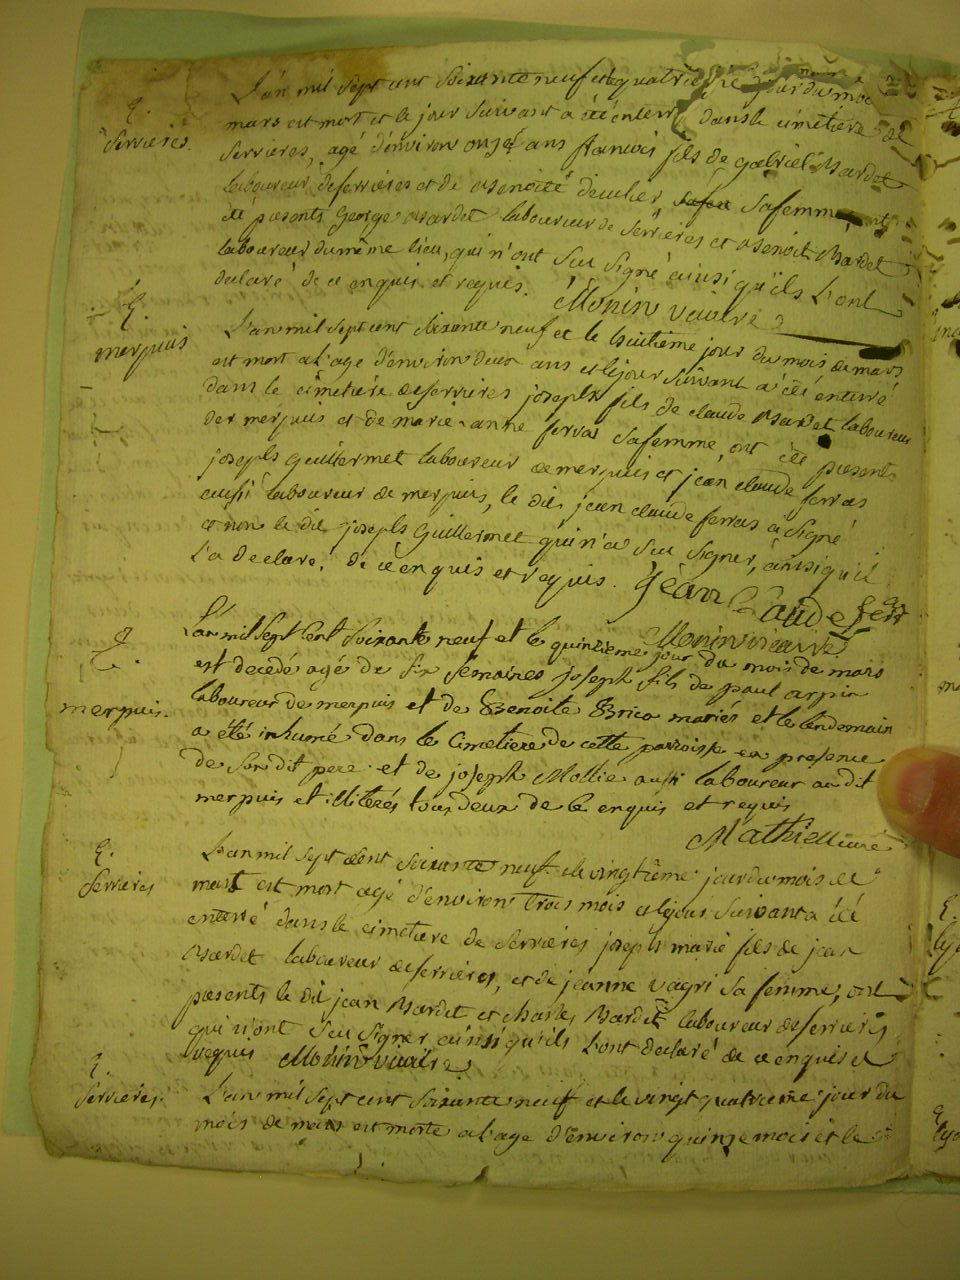 L'an mil sept cent soixante neuf et le quatrieme jour du moi
E.
mars est mort et le jour suivant a été enterré dans le cimetiere de
Serrieres.
Serrieres, agé d'environ onze ans francois fils de gabriel Bardet
laboureur de serrieres et de Benoite decrlier safemme ont
été presents George Bardet laboureur de Serrieres et Benoit Bardet
laboureur du même lieu, qui n'ont sçu signé ainsi qu'ils l'ont
declaré de ce enquis et requis. Monin vicaire
E.
merpuis
L'an mil sept cent soixante neuf et le huitieme jour du mois de mars
est mort a l'age d'environ deux ans et le jour suivant a été enterré
dans le cimetiere de serrieres joseph fils de claude Bardet laboureur
de merpuis et de marie anne ferras safemme, ont été presents
joseph guillermet laboureur de merpuis et jean claude ferras
aussi laboureur de merpuis, le dit jean claude ferras a signé
et non le dit joseph Guillermet qui n'a sçu signer, ainsi qu'il
l'a declaré, de ce enquis et requis. jean Claude ferr
Monin vicaire
L'an mil sept cent soixante neuf et le quinzieme jour du mois de mars
E.
est decedé agé de six semaines joseph fils de paul arpin
merpuis.
laboureur de merpuis et de Benoite Brica mariés et le lendemain
a été inhumé dans le Cimetiere de cette parroisse en presence
de son dit pere et de joseph Mollie aussi laboureur au dit
merpuis et illiterés tous deux de ce enquis et requis
Mathieu curé
E.
Serrieres
L'an mil sept cent soixante neuf et le vingtieme jour du mois de
mars est mort agé d'environ trois mois et le jour suivant a été
enterré dans le cimetiere de serrieres joseph marie fils de jean
Bardet laboureur de serrieres, et de jeanne vagri sa femme, ont
presents le dit jean Bardet et charles Bardet laboureur de serrieres
qui n'ont sçu signer ainsi qu'ils l'ont declaré de ce enquis et
requis Monin vicaire
E.
Serrieres.
L'an mil sept cent soixante neuf et le vingt quatrieme jour du
mois de mars est morte a l'age d'environ quinze mois et le